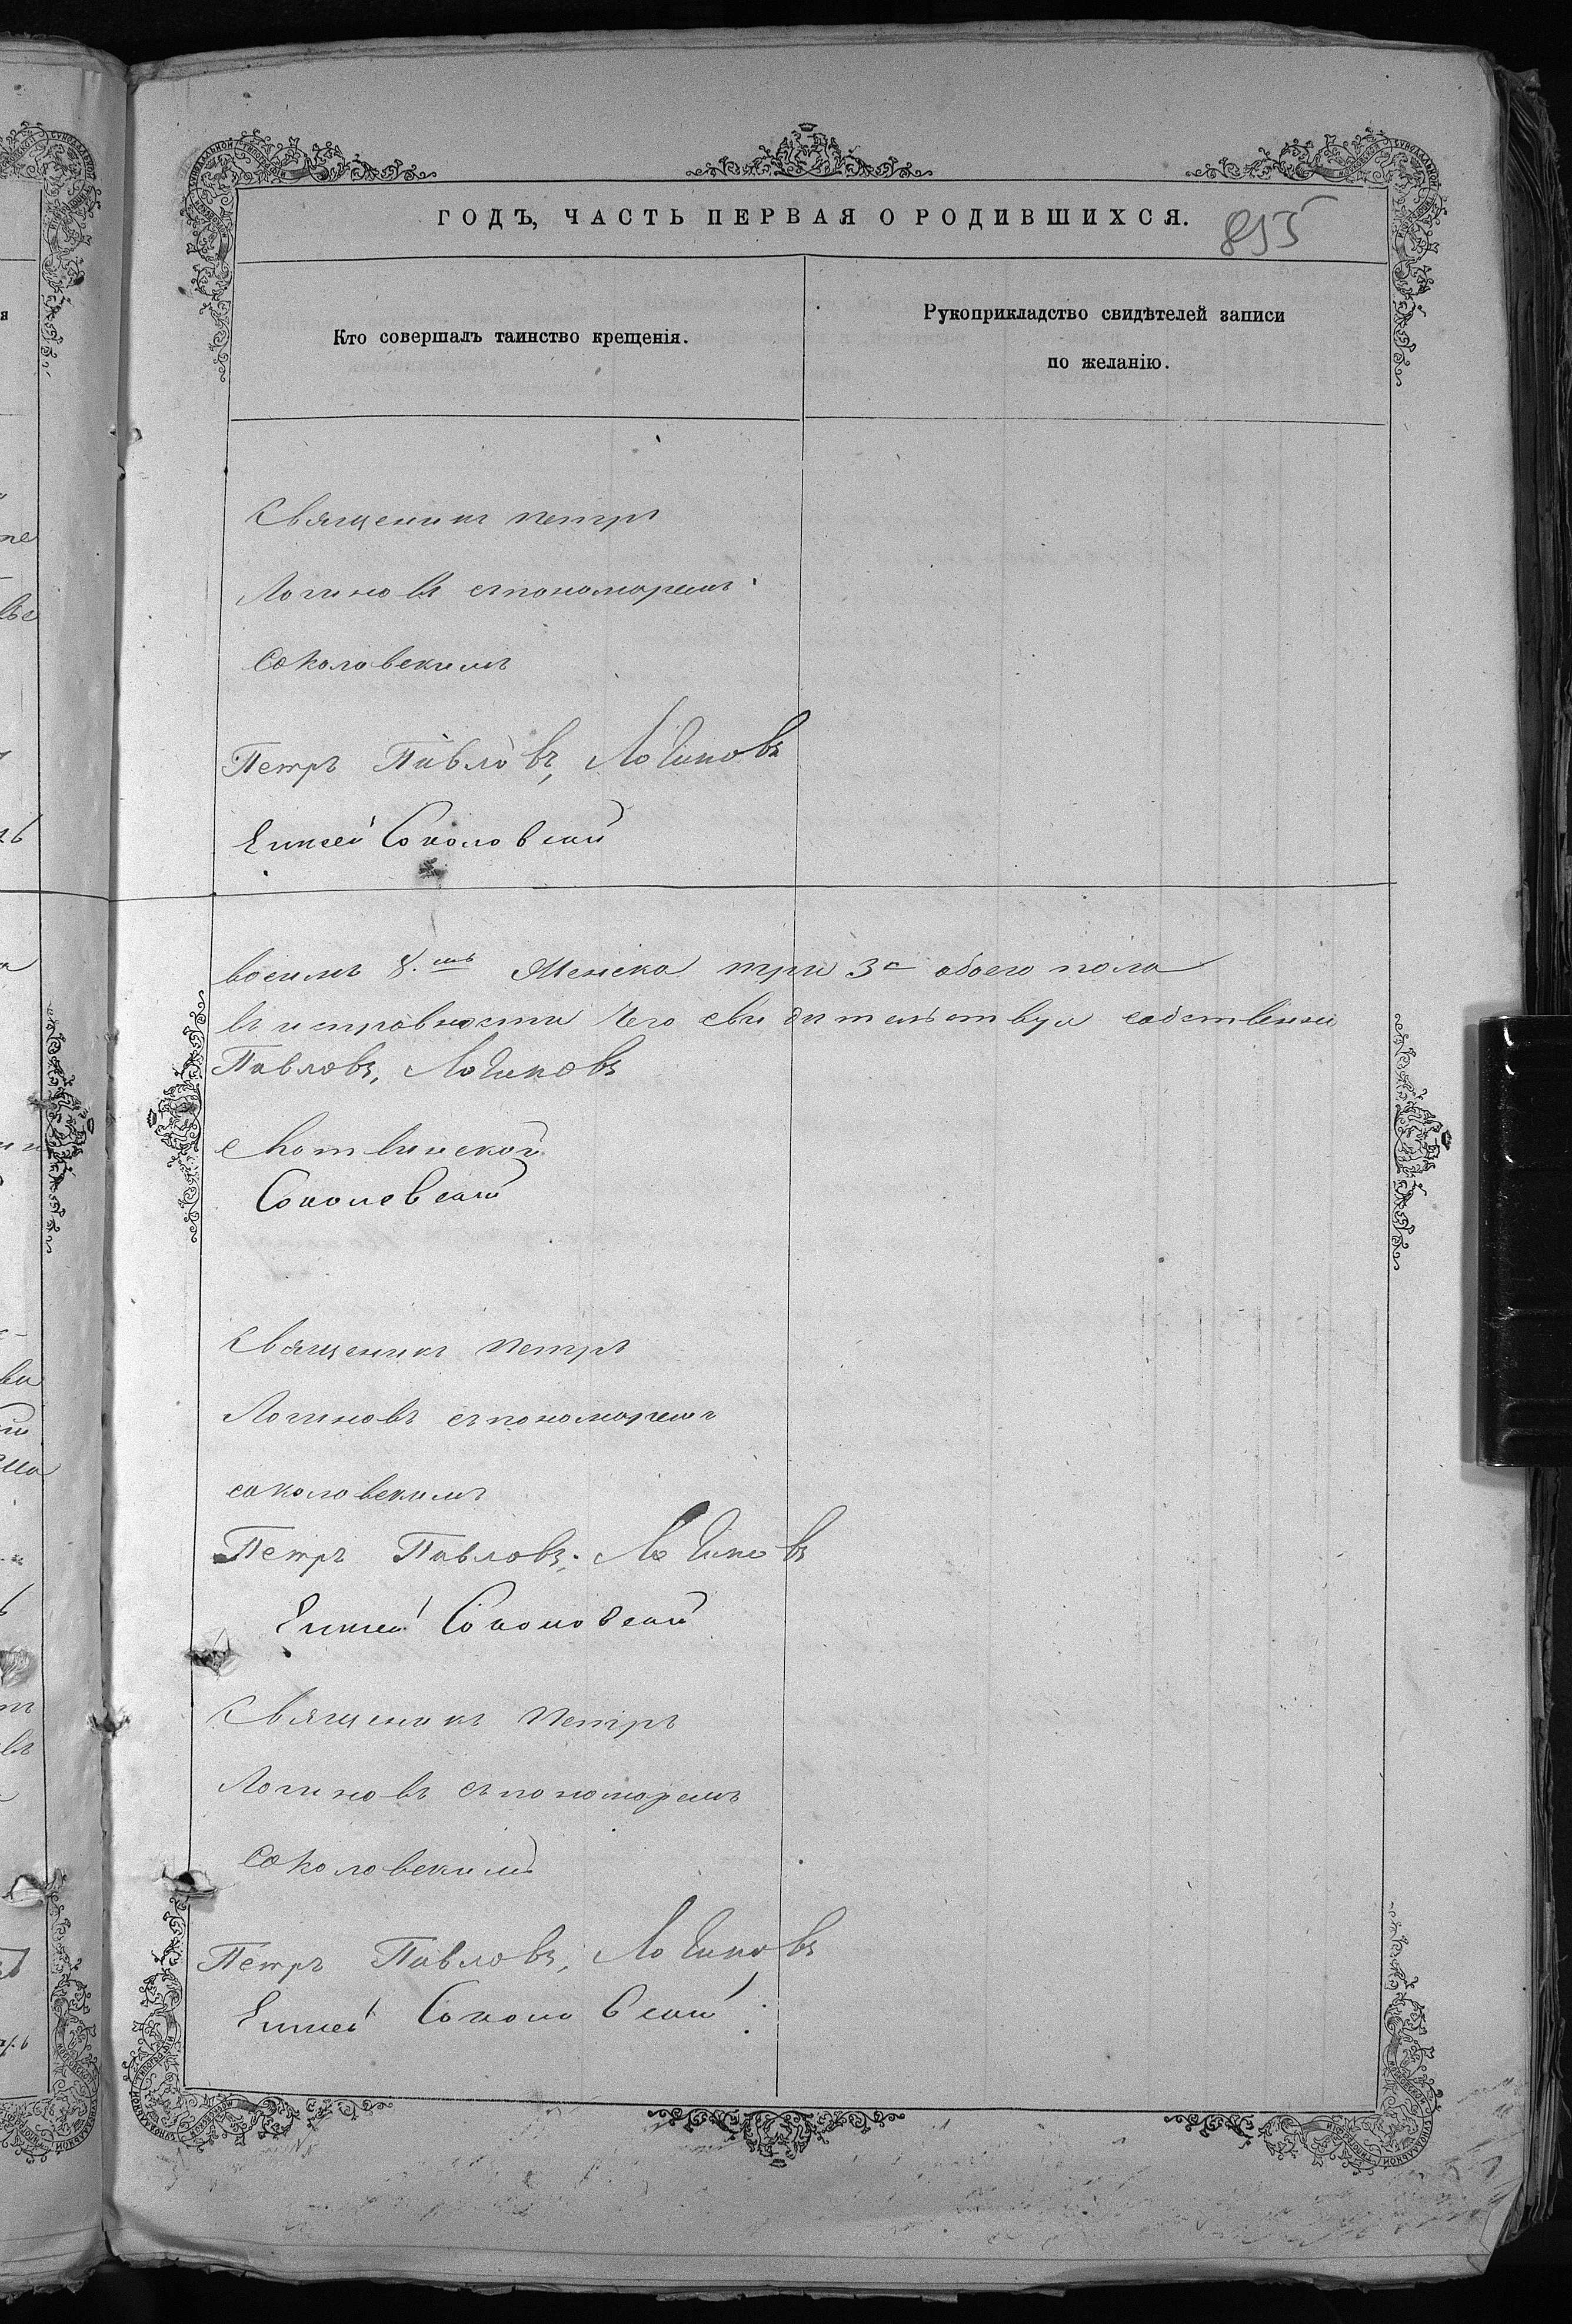 ГОДЪ, ЧАСТЬ ПЕРВАЯ О РОДИВШИХСЯ.
895
Кто совершалъ таинство крещенія.
Рукоприкладство свидѣтелей записи
по желанію.
Священикъ Петръ
Логиновъ съ пономаремъ
Соколовскимъ
Петръ Павловъ, Логиновъ
Елисей Соколовский
восимь 8.мь Женска три 3с обоего пола
въ исправности чего свидительствуя собственно
Павловъ, Логиновъ
Соколовский
Священикъ Петръ
Логиновъ съ пономаремъ
соколовскимъ
Петръ Павловъ, Логиновъ
Елисей Соколовский
Священикъ Петръ
Логиновъ съ пономаремъ
Соколовскимъ
Петръ Павловъ, Логиновъ
Елисей Соколовский